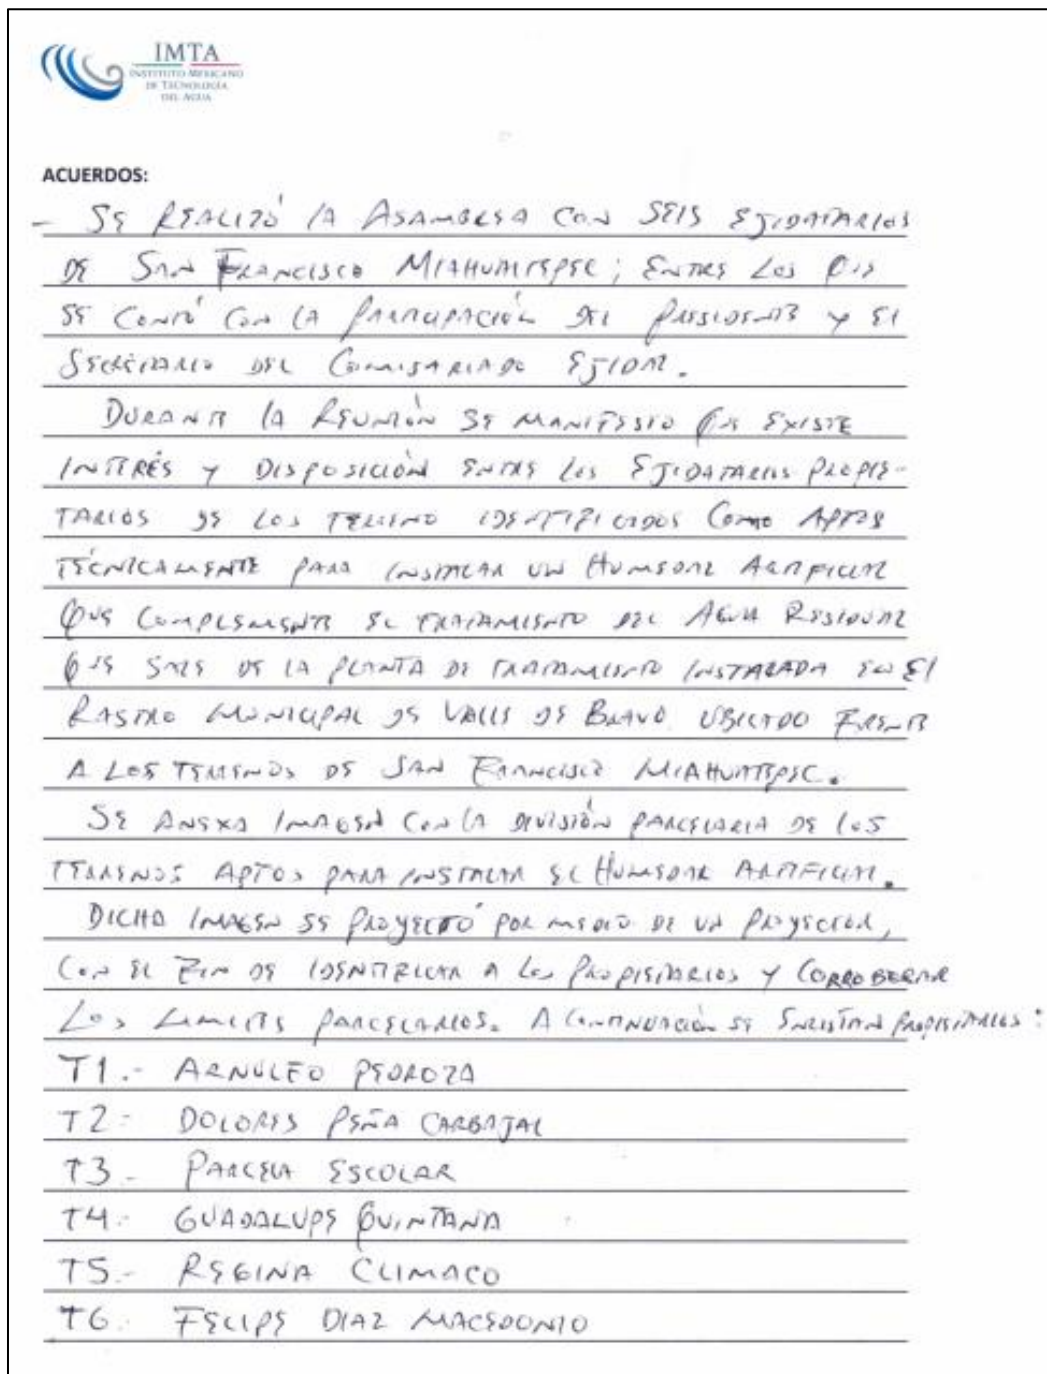 IMTA
INSTITUTO MEXICANO
DE TECNOLOGÍA
DEL AGUA
ACUERDOS:
- SE REALIZÓ LA ASAMBLEA CON SEIS EJIDATARIOS
DE SAN FRANCISCO MIAHUATEPEC; ENTRE LOS QUE
SE CONTÓ CON LA PARTICIPACIÓN DEL PRESIDENTE Y EL
SECRETARIO DEL COMISARIADO EJIDAL.
DURANTE LA REUNIÓN SE MANIFESTO QUE EXISTE
INTERÉS Y DISPOSICIÓN ENTRE LOS EJIDATARIOS PROPIE-
TARIOS DE LOS TERRENO IDENTIFICADOS COMO APTOS
TÉCNICAMENTE PARA INSTALAR UN HUMEDAL ARTIFICIAL
QUE COMPLEMENTE EL TRATAMIENTO DEL AGUA RESIDUAL
QUE SALE DE LA PLANTA DE TRATAMIENTO INSTALADA EN EL
RASTRO MUNICIPAL DE VALLE DE BRAVO UBICADO FRENTE
A LOS TERRENOS DE SAN FRANCISCO MIAHUATEPEC.
SE ANEXA IMAGEN CON LA DIVISIÓN PARCELARIA DE LOS
TERRENOS APTOS PARA INSTALAR EL HUMEDAL ARTIFICIAL.
DICHA IMAGEN SE PROYECTÓ POR MEDIO DE UN PROYECTOR,
CON EL FIN DE IDENTIFICAR A LOS PROPIETARIOS Y CORROBERAR
LOS LIMITES PARCELARIOS. A CONTINUACIÓN SE ENLISTAN PROPIETARIOS:
T1.- ARNULFO PEDROZA
T2- DOLORES PEÑA CARBAJAL
T3- PARCELA ESCOLAR
T4.- GUADALUPE QUINTANA
T5.- REGINA CLIMACO
T6. FELIPE DIAZ MACEDONIO